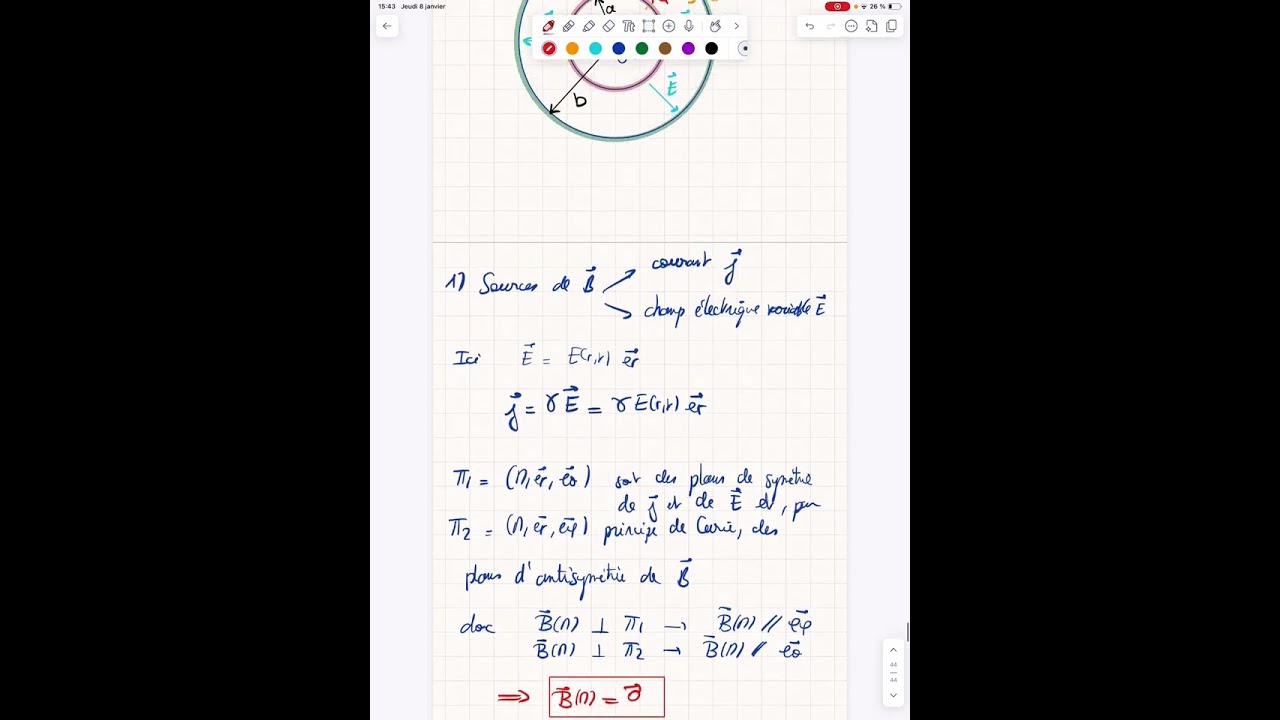 15:43 Jeudi 8 janvier
26 %
a
b
E⃗
1) Sources de B⃗
courant j⃗
champ électrique variable E⃗
Ici E⃗ = E(r,t) e⃗r
j⃗ = γE⃗ = γE(r,t) e⃗r
π1 = (M, e⃗r, e⃗θ) sont des plans de symétrie
de j⃗ et de E⃗ et, par
π2 = (M, e⃗r, e⃗φ) principe de Curie, des
plans d'antisymétrie de B⃗
doc B⃗(M) ⊥ π1 → B⃗(M) // e⃗φ
B⃗(M) ⊥ π2 → B⃗(M) // e⃗θ
⇒ B⃗(M) = 0⃗
44
44